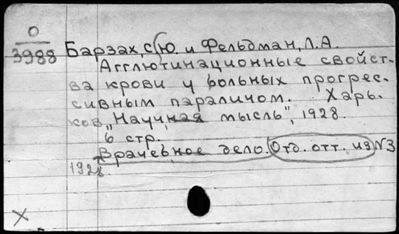 0
3988
Барзах, С. Ю и Фельдман, Л.А.
Агглютинационные свойст-
ва крови у больных прогрес-
сивным параличом. Харь-
ков, "Научная мысль", 1928.
6 стр.
Врачебное дело. Отд. отт. из №3
1928
X